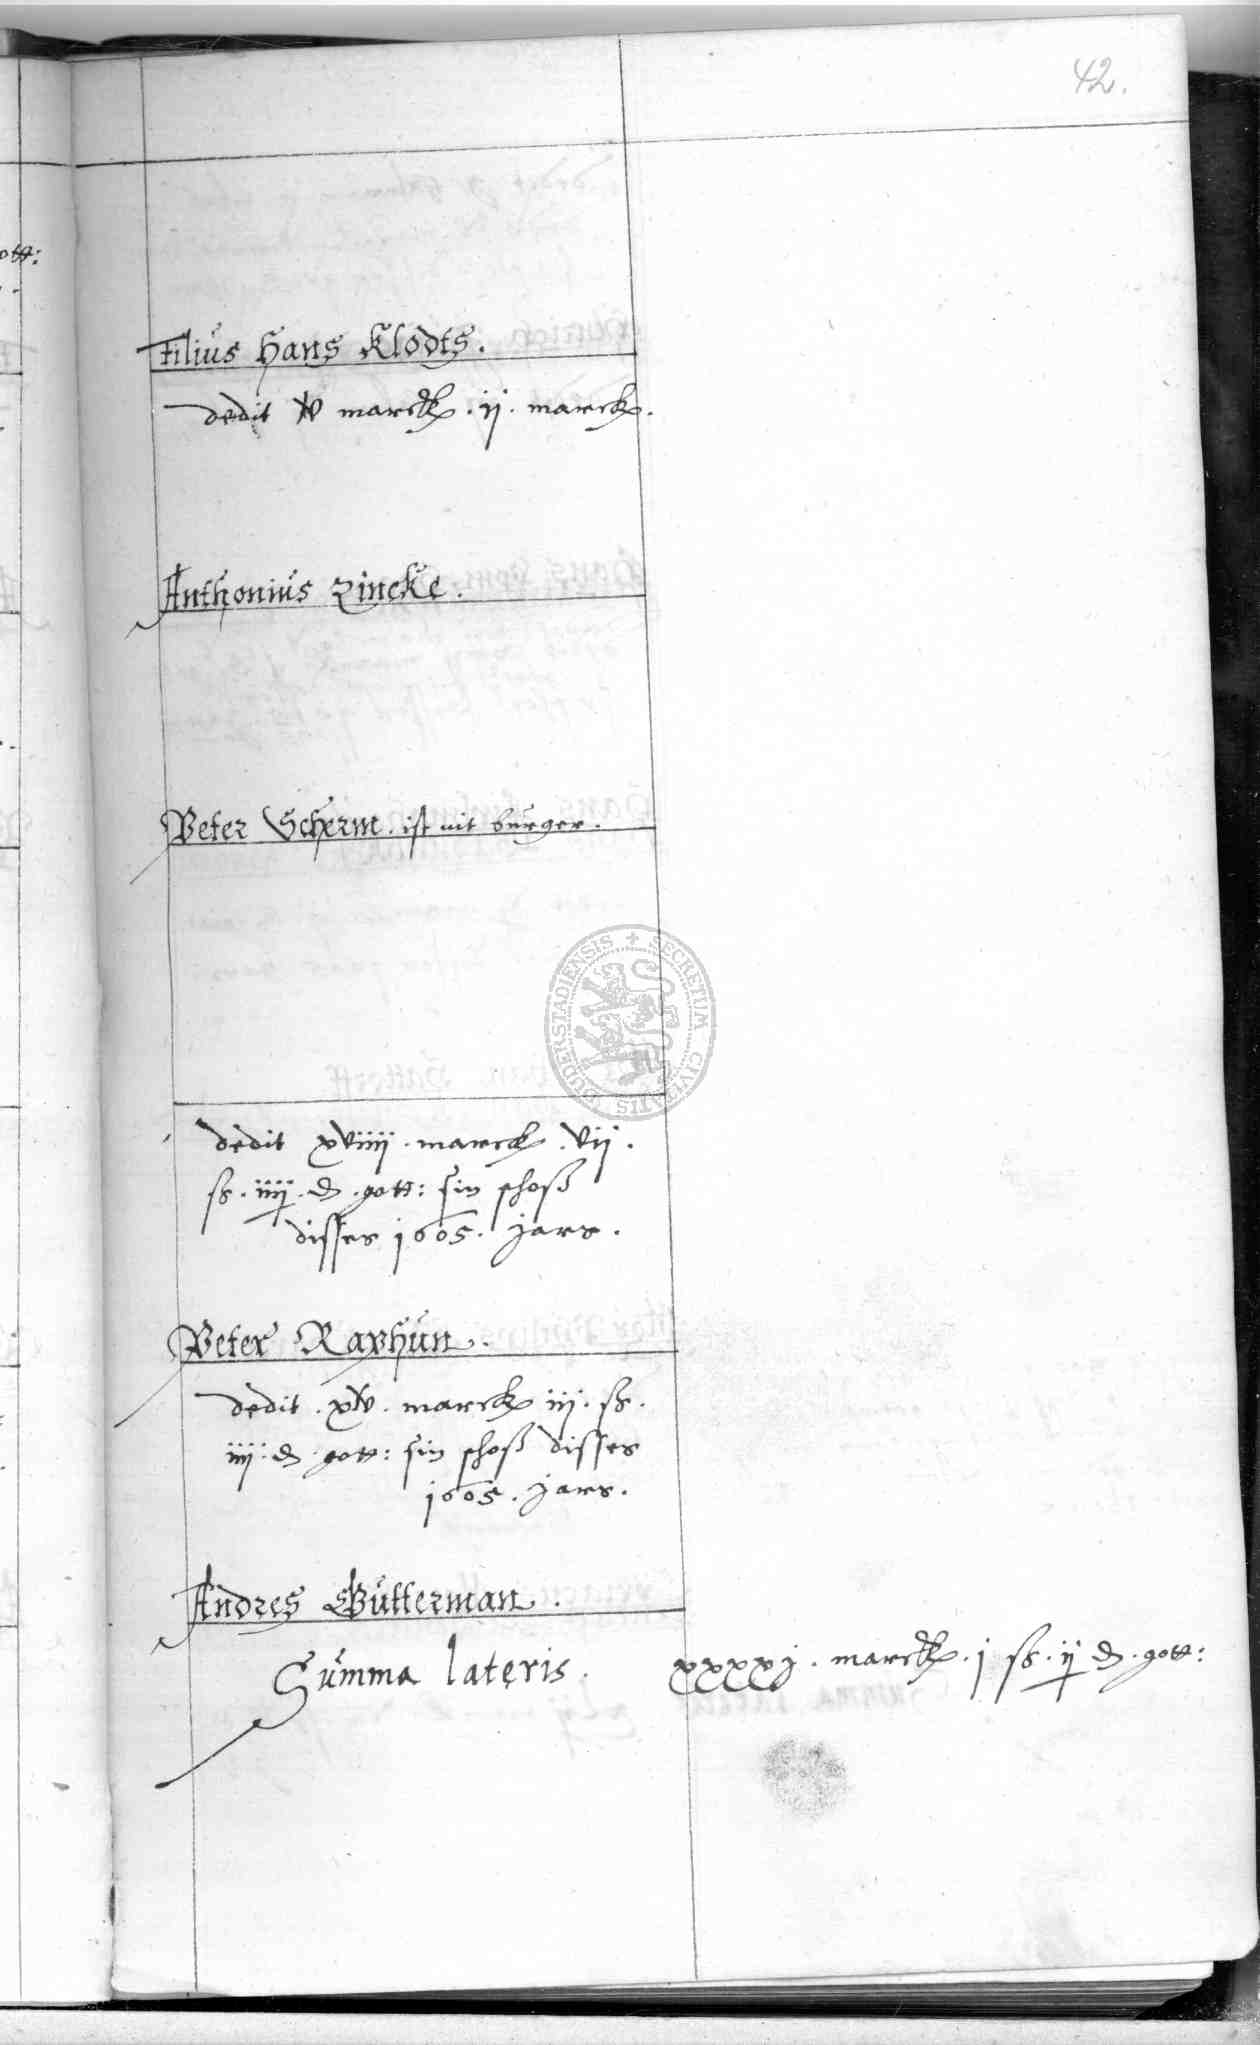 42.
ott:
Filius Hans Klodts.
dedit v marck. ij. marck.
Anthonius Zincke.
Peter Scherm. ist nit burger.
SECRETUM CIVITATIS DUDERSTADIENSIS
dedit xviiij. marck. vij.
ß. iiij. d. gott: sin schoß
disses 1605. jars.
Peter Raphun.
dedit. xv. marck iij. ß.
iiij. d. gott: sin schoß disses
1605. jars.
Andres Gutterman.
Summa lateris. xxxxj. marck. j ß. ij d. gott: